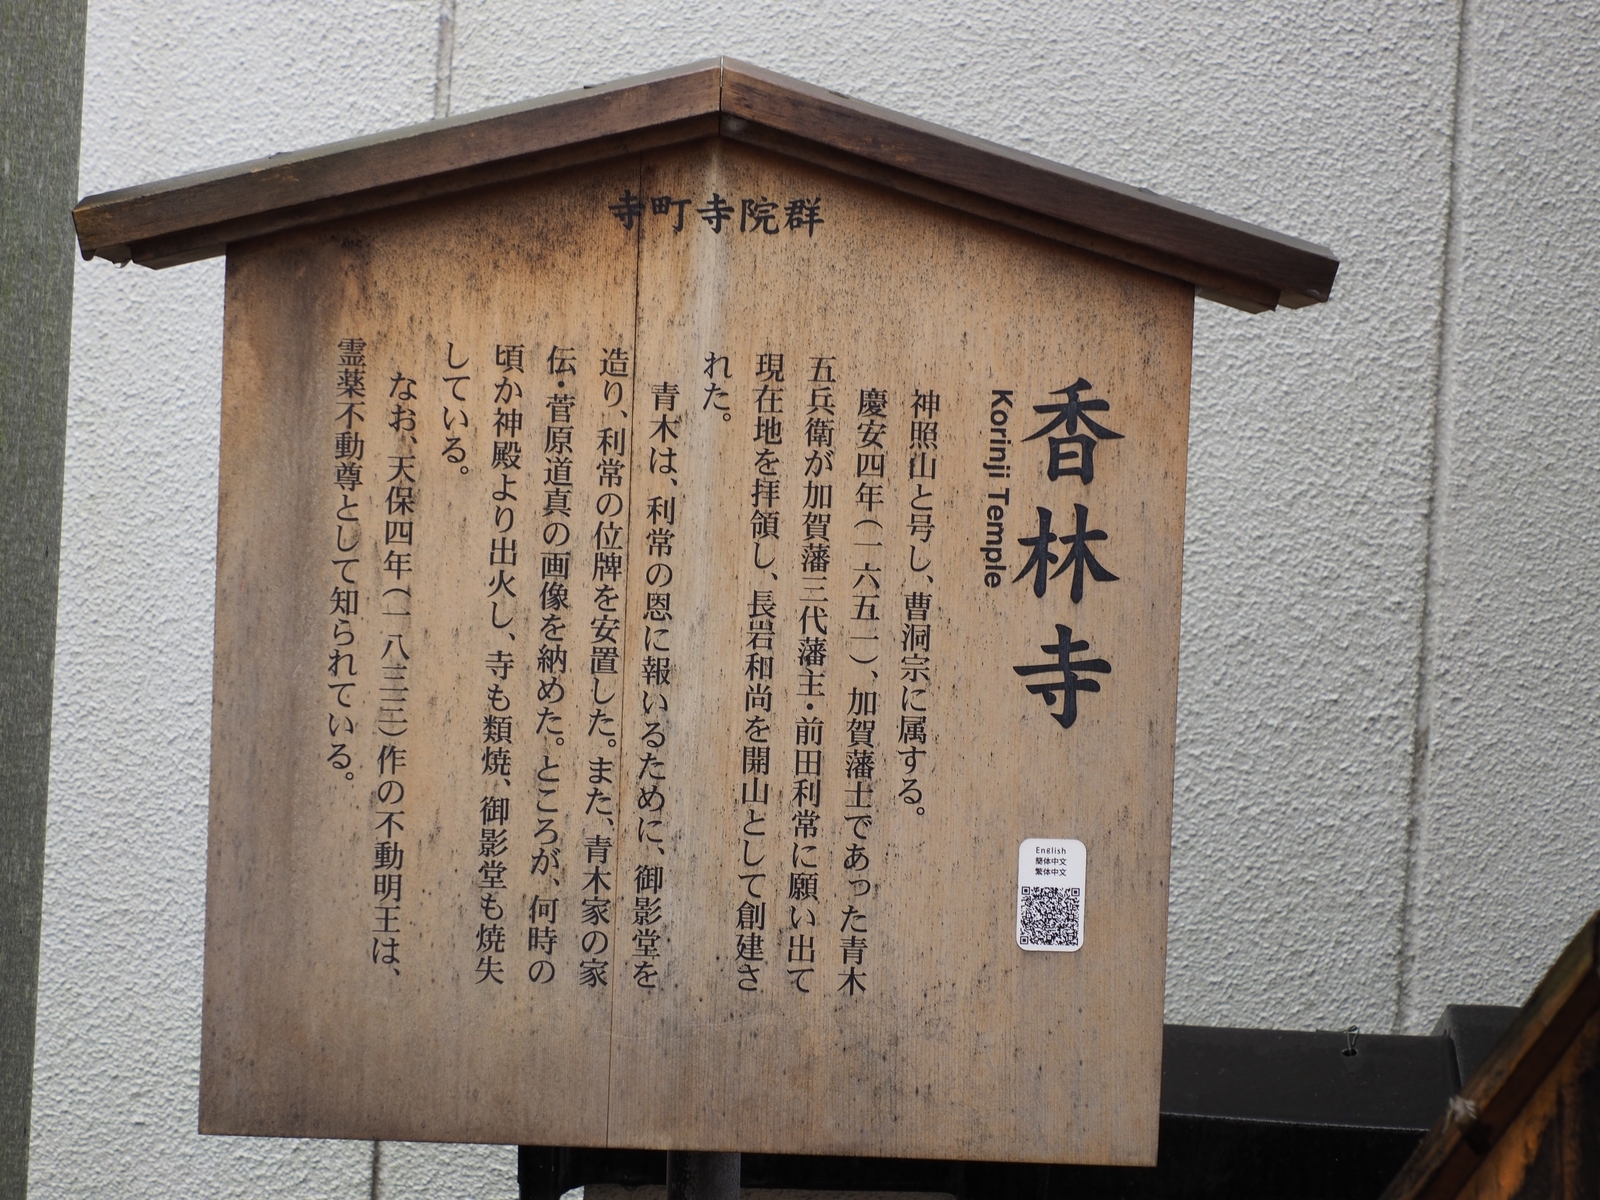 寺町寺院群
香林寺
Korinji Temple
神照山と号し、曹洞宗に属する。
慶安四年(一六五一)、加賀藩士であった青木
五兵衛が加賀藩三代藩主・前田利常に願い出て
現在地を拝領し、長岩和尚を開山として創建さ
れた。
青木は、利常の恩に報いるために、御影堂を
造り、利常の位牌を安置した。また、青木家の家
伝・菅原道真の画像を納めた。ところが、何時の
頃か神殿より出火し、寺も類焼、御影堂も焼失
している。
なお、天保四年(一八三三)作の不動明王は、
霊薬不動尊として知られている。
English
簡体中文
繁体中文